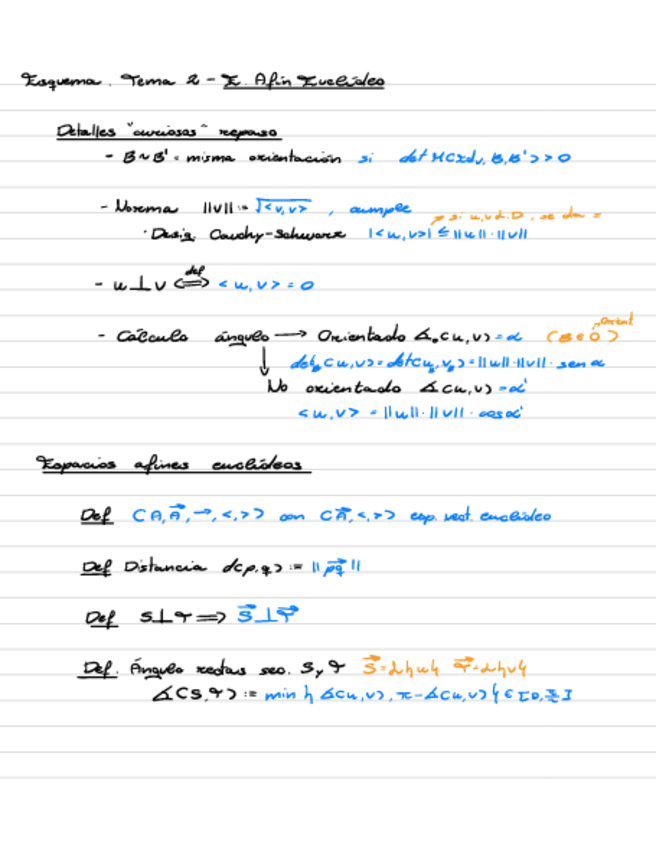 Esquema. Tema 2 - E. Afín Euclídeo
Detalles "curiosos" repaso
- B ~ B' = misma orientación si det M(Id_V, B, B') > 0
- Norma ||v|| := √<v,v> , cumple
→ si u,v L.D., se da =
· Desig. Cauchy-Schwarz |<u,v>| ≤ ||u||·||v||
- u ⊥ v ⟺ (def) <u,v> = 0
- Cálculo ángulo → Orientado ∡ₒ(u,v) = α (B ∈ O) orient
↓ det_B(u,v) = det(u_B, v_B) = ||u||·||v||·sen α
No orientado ∡(u,v) = α'
<u,v> = ||u||·||v||·cos α'
Espacios afines euclídeos
Def (A, A⃗, →, <,>) con (A⃗, <,>) esp. vect. euclídeo
Def Distancia d(p,q) := ||p⃗q||
Def S ⊥ T ⟹ S⃗ ⊥ T⃗
Def. Ángulo rectas sec. S y T S⃗ = L{u} T⃗ = L{v}
∡(S,T) := min { ∡(u,v), π - ∡(u,v) } ∈ [0, π/2]